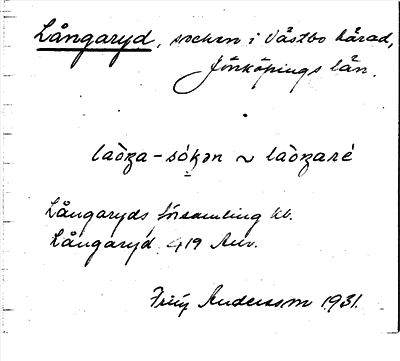 Långaryd, socken i Västbo härad,
Jönköpings län.
laòŋa-sókən ~ laòŋaré
Långaryds församling kb.
Långaryd 419 Anv.
Fritz Andersson 1931.